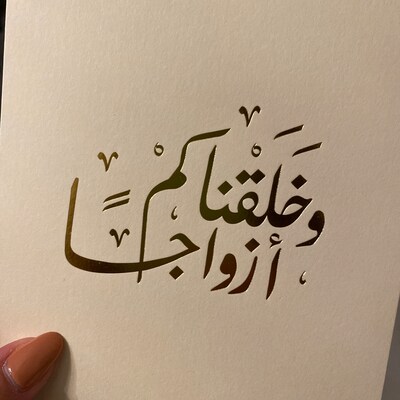 وَخَلَقْناكُمْ
أزواجًا